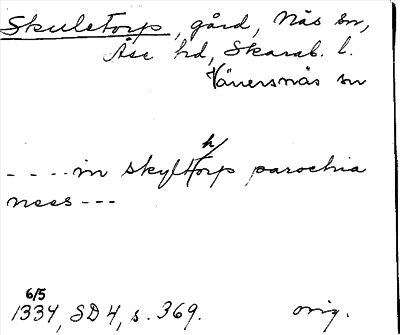 Skuletorp, gård, Näs sn,
Åse hd, Skarab. l.
Vänersnäs sn
h/
---- in skyltorp parochia
nees ---
6/5
1334, SD 4, s. 369. orig.